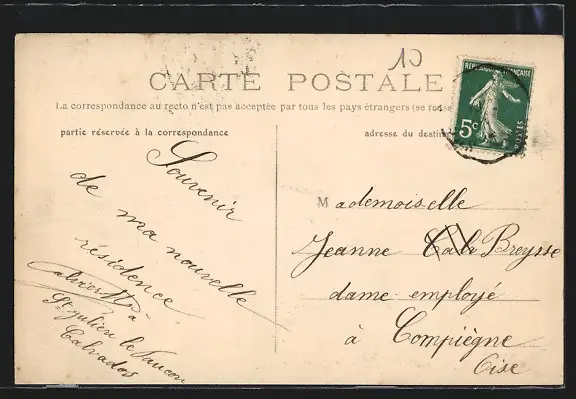 10
CARTE POSTALE
La correspondance au recto n'est pas acceptée par tous les pays étrangers (se rense
partie réservée à la correspondance
adresse du destin
RÉPUBLIQUE FRANÇAISE
5c
POSTES
Souvenir
de ma nouvelle
résidence
à
St Julien le Faucon
Calvados
Mademoiselle
Jeanne Breysse
dame employé
à Compiègne
Oise